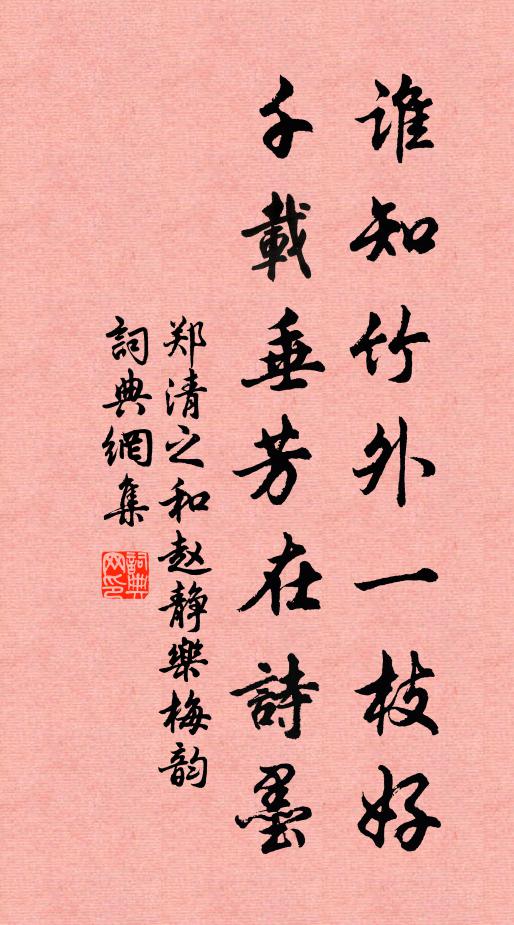 谁知竹外一枝好
千載垂芳在詩墨
郑清之和赵静樂梅韵
詞典網集
詞典网印